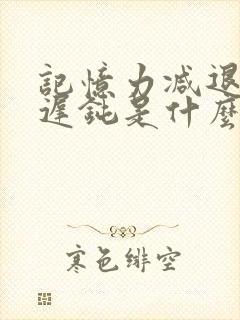 記憶力減退
遲鈍是什麼
寒色緋空